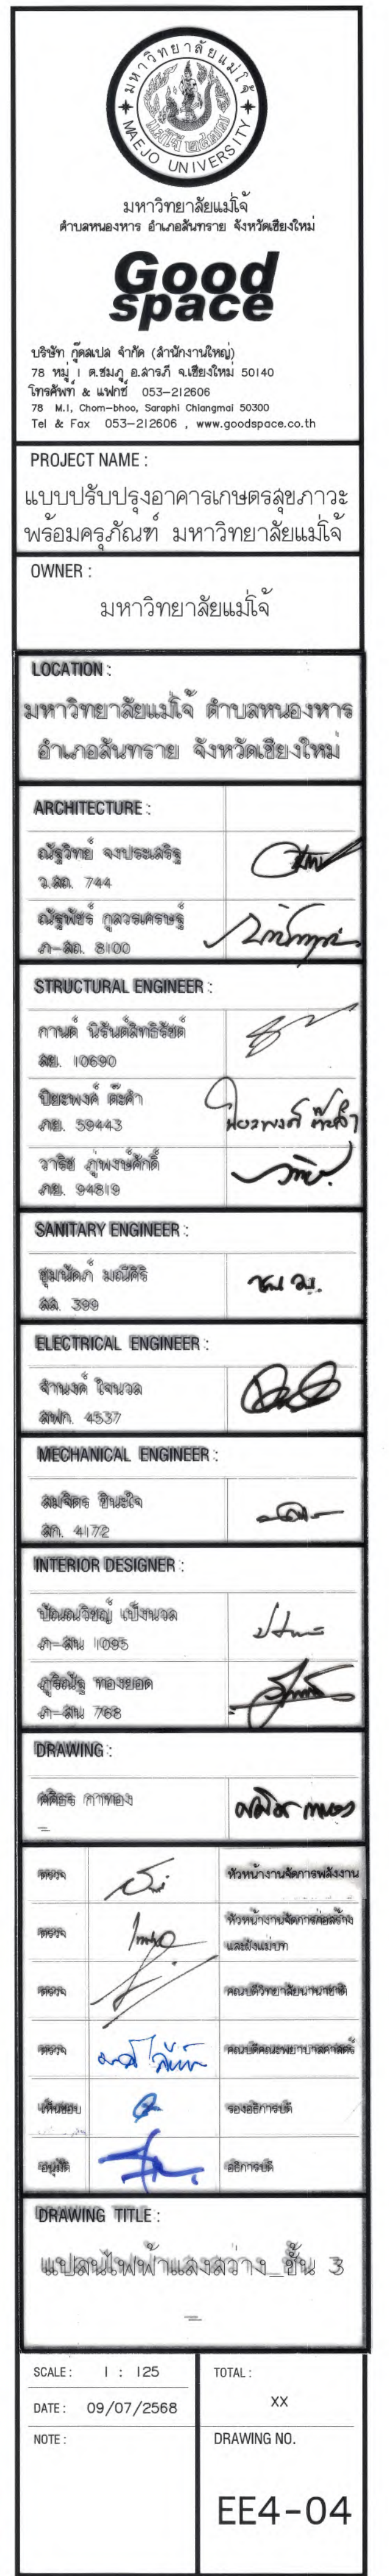 มหาวิทยาลัยแม่โจ้
MAEJO UNIVERSITY
มหาวิทยาลัยแม่โจ้
ตำบลหนองหาร อำเภอสันทราย จังหวัดเชียงใหม่
Good
space
บริษัท กู๊ดสเปส จำกัด (สำนักงานใหญ่)
78 หมู่ 1 ต.ชมภู อ.สารภี จ.เชียงใหม่ 50140
โทรศัพท์ & แฟกซ์ 053-212606
78 M.1, Chom-bhoo, Saraphi Chiangmai 50300
Tel & Fax 053-212606 , www.goodspace.co.th
PROJECT NAME :
แบบปรับปรุงอาคารเกษตรสุขภาวะ
พร้อมครุภัณฑ์ มหาวิทยาลัยแม่โจ้
OWNER :
มหาวิทยาลัยแม่โจ้
LOCATION :
มหาวิทยาลัยแม่โจ้ ตำบลหนองหาร
อำเภอสันทราย จังหวัดเชียงใหม่
ARCHITECTURE :
ณัฐวิทย์ จงประเสริฐ
ว.สถ. 744
ณัฐพัชร์ กุลวรเศรษฐ์
ภ-สถ. 8100
STRUCTURAL ENGINEER :
กานต์ นิรันต์สิทธิรัชต์
สย. 10690
ปิยะพงค์ ต๊ะคำ
ภย. 59443
ปิยะพงค์ ต๊ะคำ
วาริช ภู่พงษ์ศักดิ์
ภย. 94819
SANITARY ENGINEER :
ชุมนัดภ์ มณีศิริ
สส. 399
ELECTRICAL ENGINEER :
จำนงค์ ใจนวล
สฟก. 4537
MECHANICAL ENGINEER :
สมจิตร ชินะใจ
สก. 4172
INTERIOR DESIGNER :
ปัณณวิชญ์ เป็งนวล
ภ-สน 1095
ภูริณัฐ ทองยอด
ภ-สน 768
DRAWING :
ศศิธร กาทอง
–
ตรวจ หัวหน้างานจัดการพลังงาน
ตรวจ หัวหน้างานจัดการก่อสร้าง
และผังแม่บท
ตรวจ คณบดีวิทยาลัยนานาชาติ
ตรวจ คณบดีคณะพยาบาลศาสตร์
เห็นชอบ รองอธิการบดี
อนุมัติ อธิการบดี
DRAWING TITLE :
แปลนไฟฟ้าแสงสว่าง_ชั้น 3
–
SCALE : 1 : 125
TOTAL :
XX
DATE : 09/07/2568
NOTE :
DRAWING NO.
EE4-04